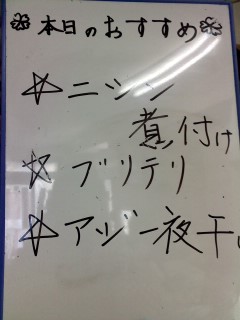 本日のおすすめ
☆ニシン
煮付け
☆ブリテリ
☆アジ一夜干し